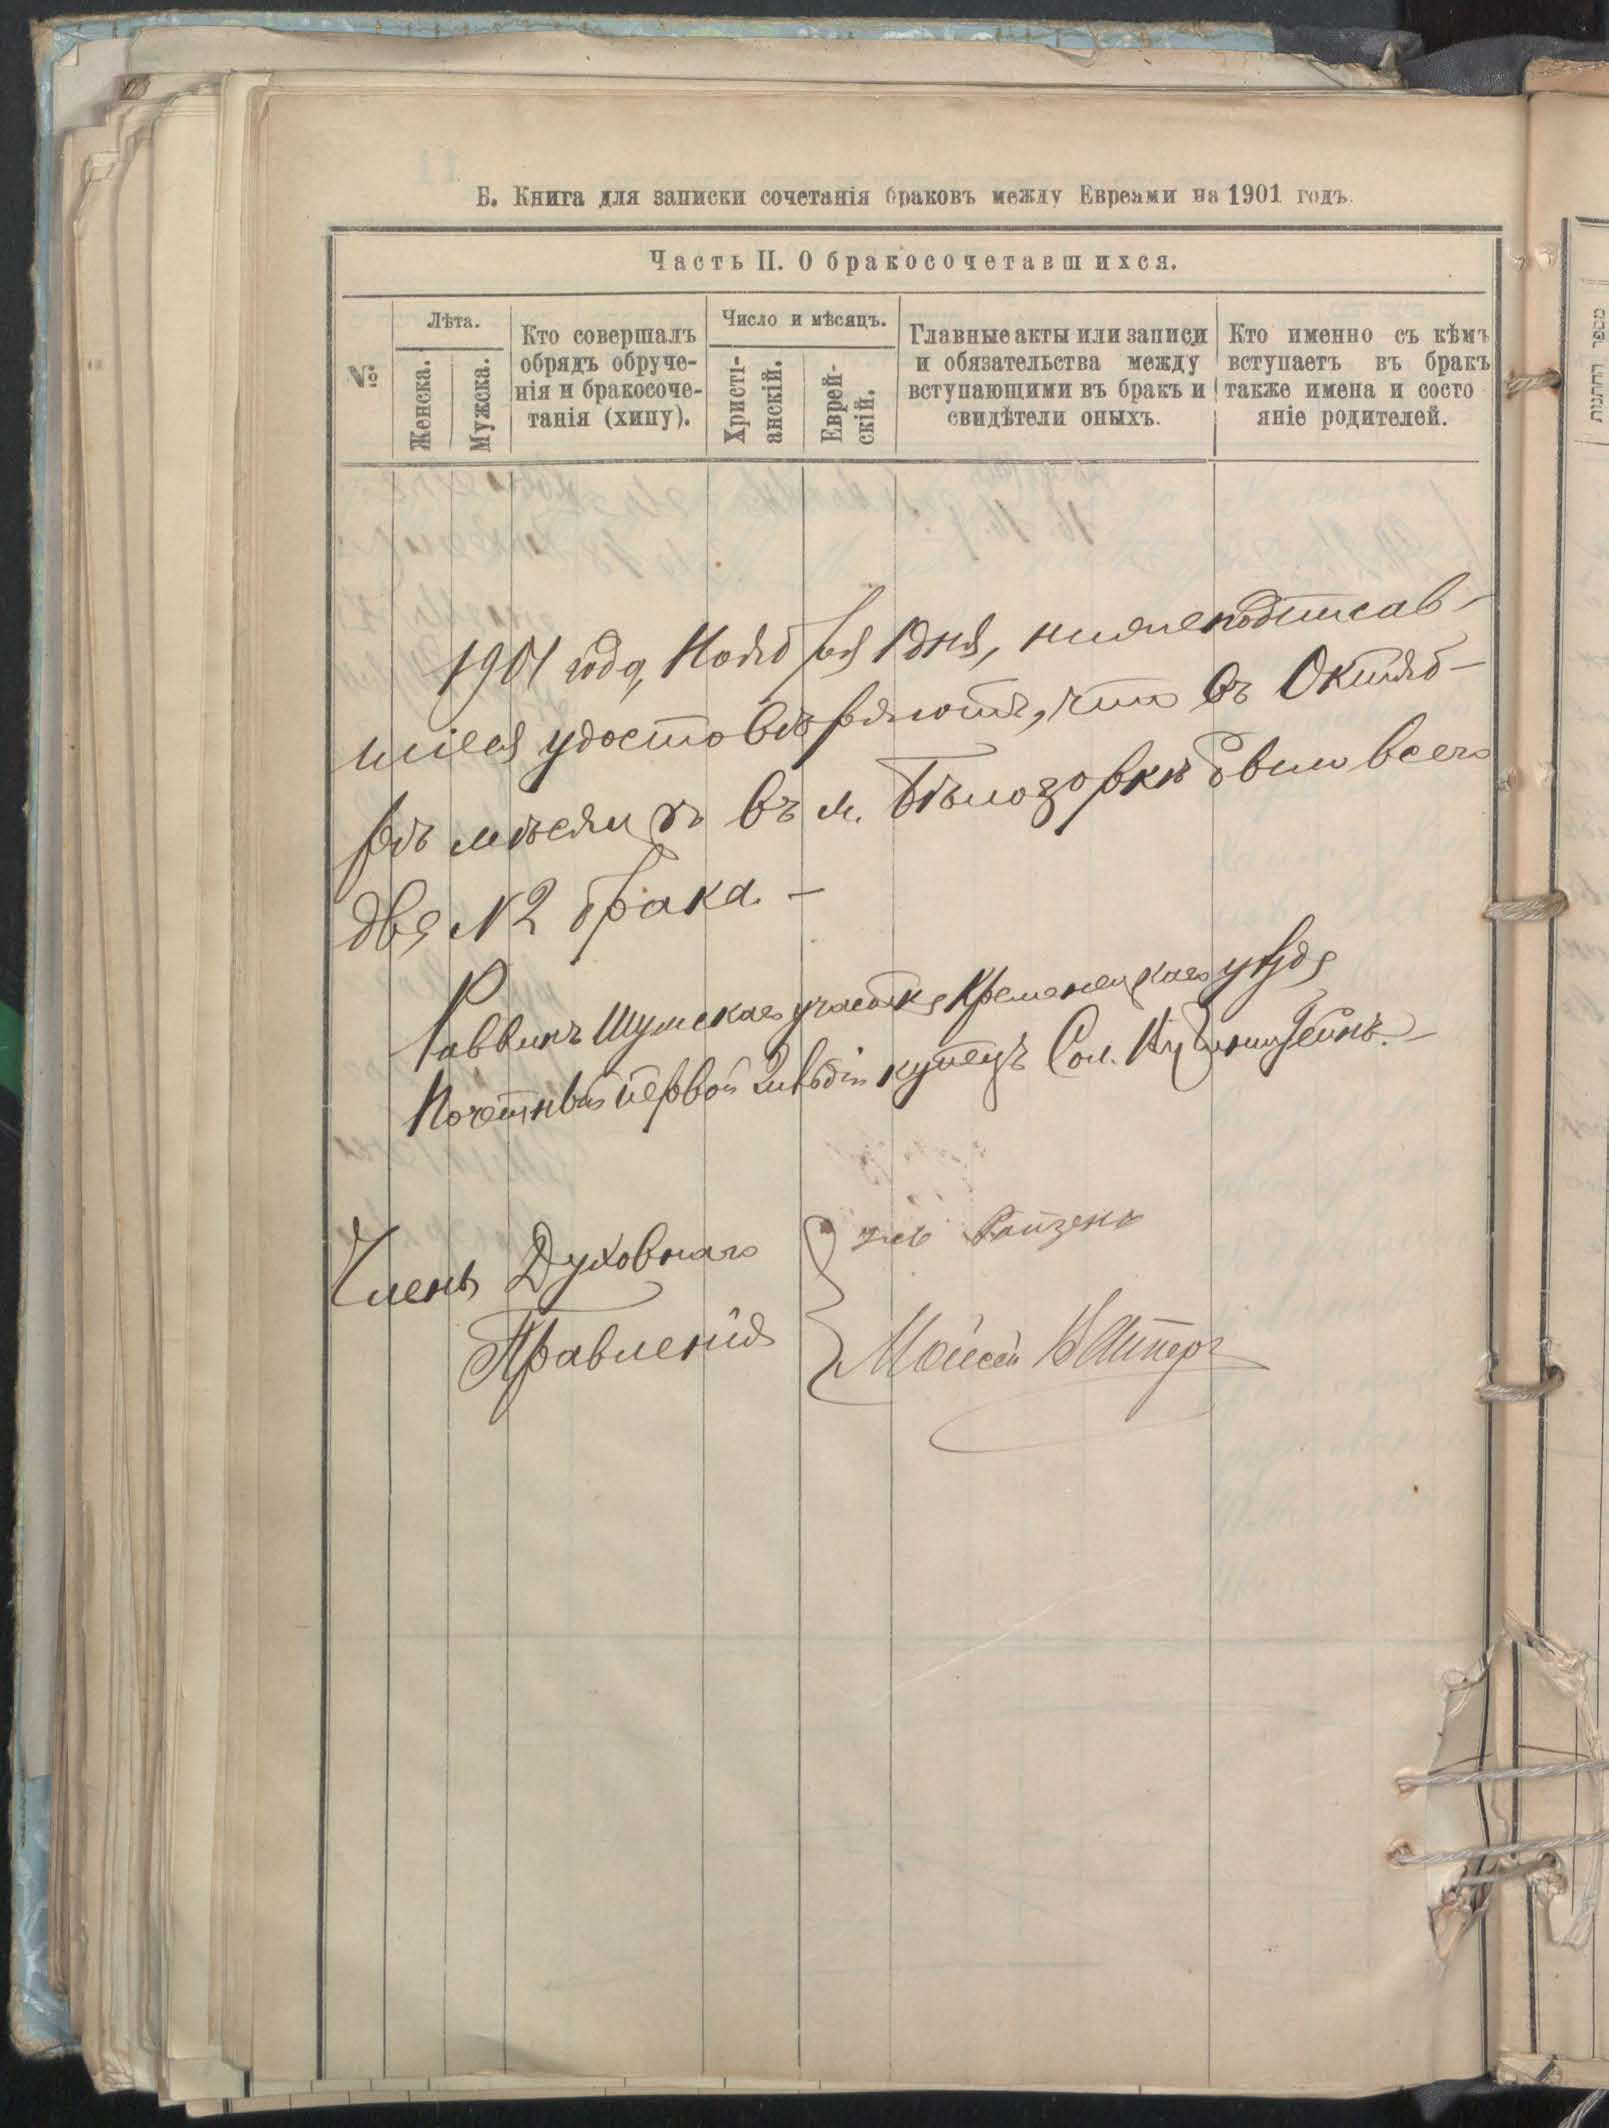 Б. Книга для записки сочетанія браковъ между Евреями на 1901 годъ.
Часть II. О бракосочетавшихся.
№
Лѣта.
Женска.
Мужска.
Кто совершалъ
обрядъ обруче-
нія и бракосоче-
танія (хипу).
Число и мѣсяцъ.
Христі-
анскій.
Еврей-
скій.
Главные акты или записи
и обязательства между
вступающими въ бракъ и
свидѣтели оныхъ.
Кто именно съ кѣмъ
вступаетъ въ бракъ
также имена и состо
яніе родителей.
1901 года, Ноября 1 дня, нижеподписав-
шіеся удостовѣряютъ, что въ Октяб-
рѣ мѣсяцѣ въ м. Бѣлозоркѣ было всего
два №2 брака. —
Раввинъ Шумскаго участка Кременецкаго уѣзда
Почетный первой гильдіи купецъ Сол.
Члены Духовнаго
Правленія
Ройзенъ
Мойсей
מספר החתונות